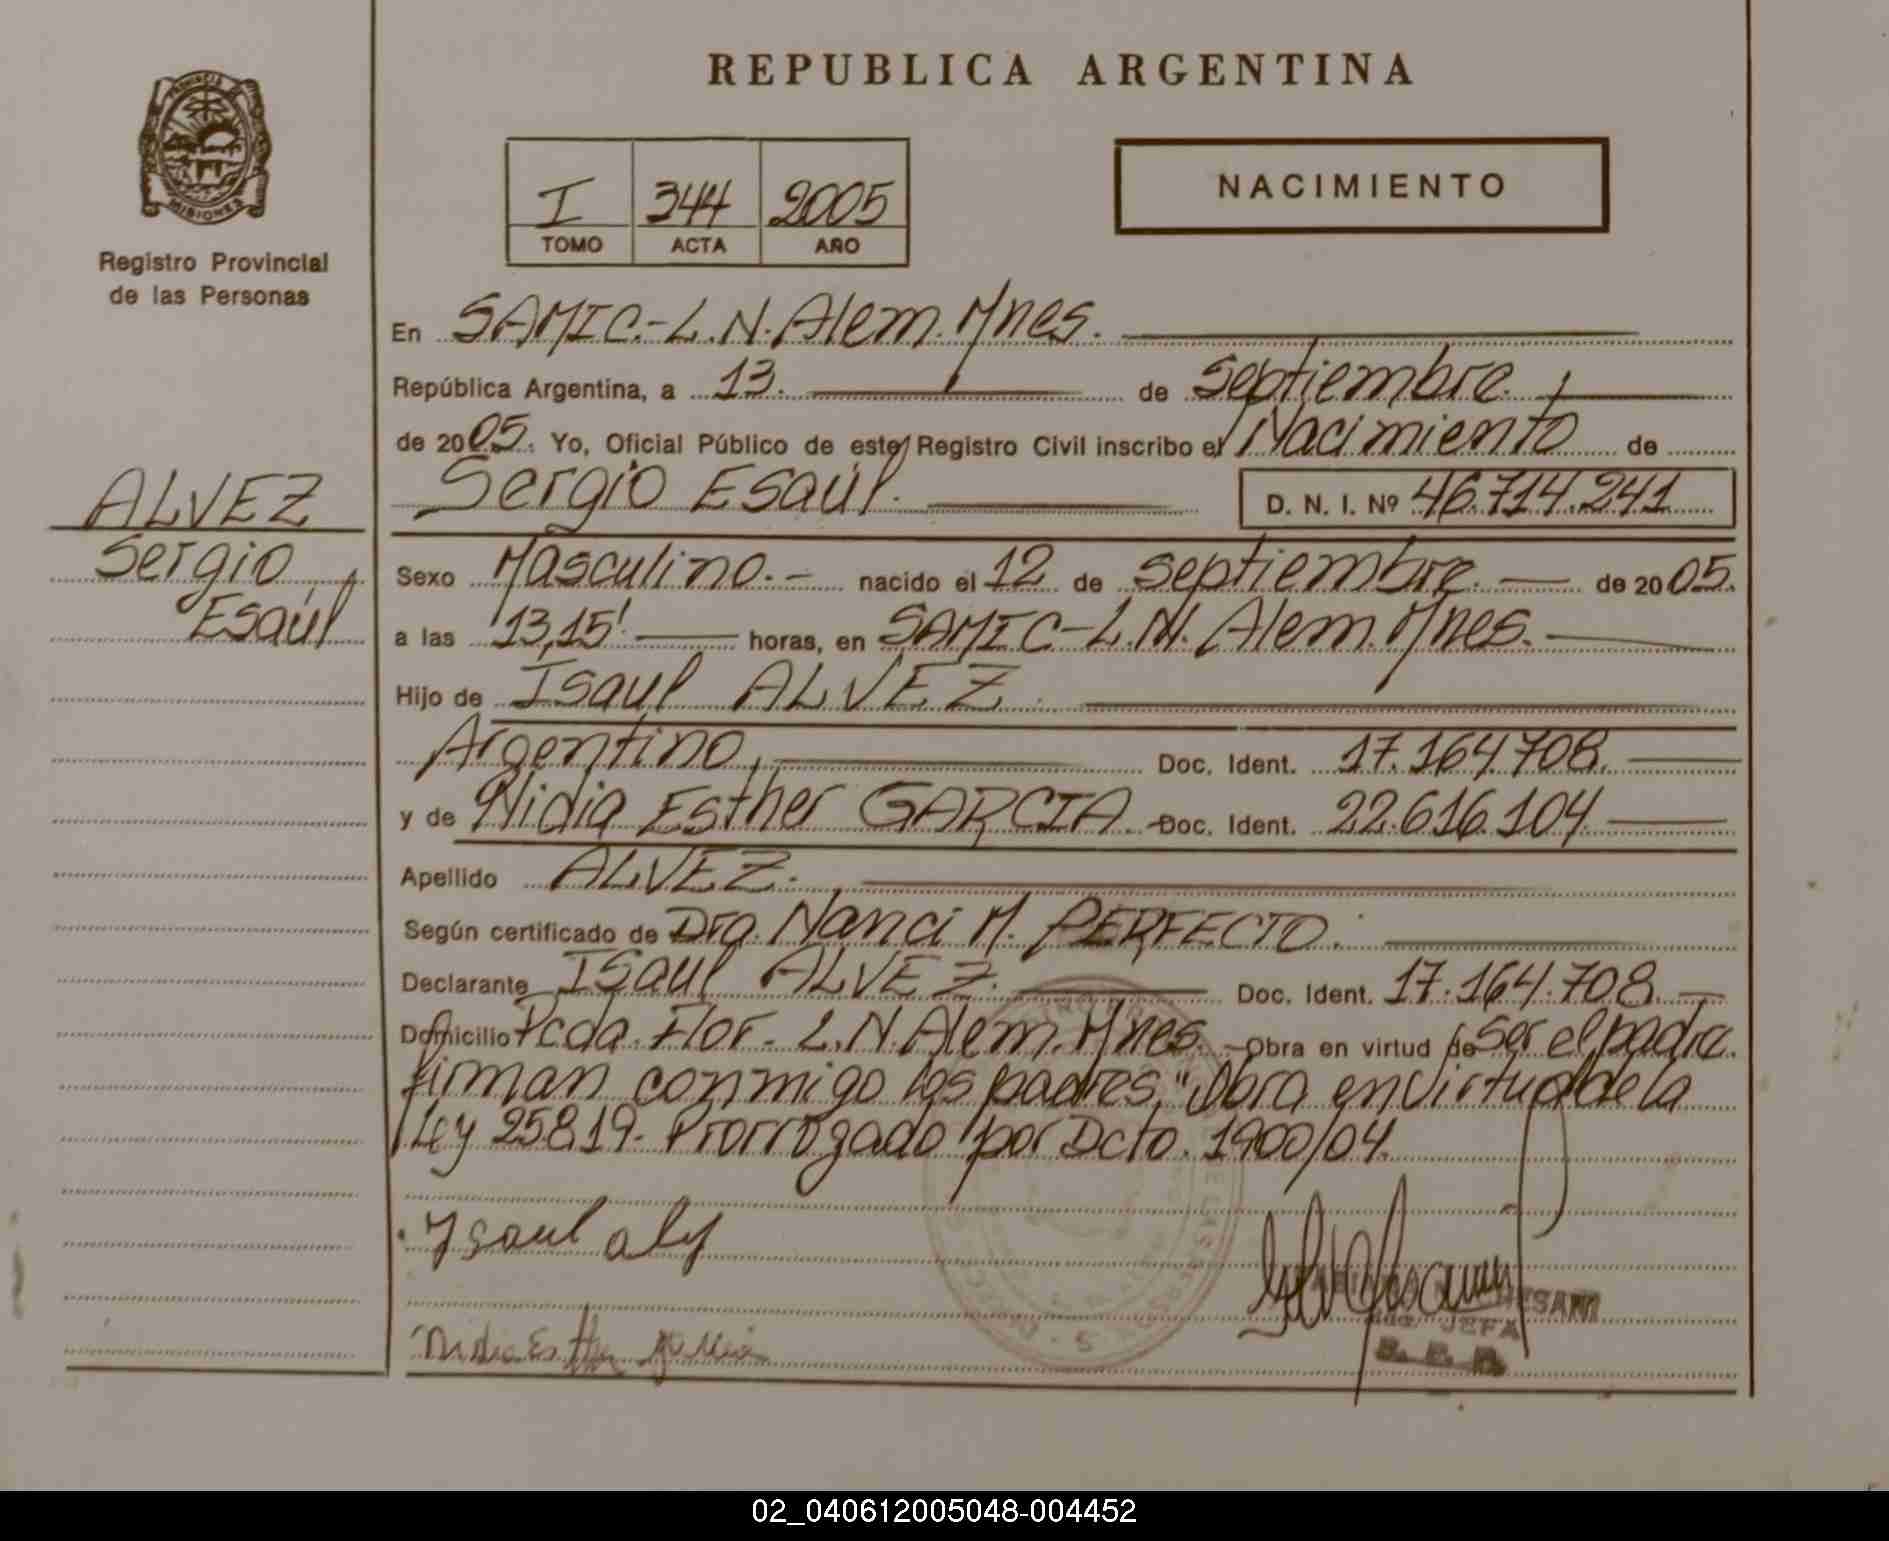 REPUBLICA ARGENTINA
PROVINCIA
MISIONES
Registro Provincial
de las Personas
I 344 2005
TOMO ACTA AÑO
NACIMIENTO
En SAMIC.-L.N.Alem.Mnes.
República Argentina, a 13. de septiembre.
de 2005. Yo, Oficial Público de este Registro Civil inscribo el Nacimiento de
Sergio Esaúl. D. N. I. Nº 46.714.241
ALVEZ
Sergio
Esaúl
Sexo Masculino.- nacido el 12 de septiembre. de 2005.
a las 13,15' horas, en SAMIC-L.N. Alem.Mnes.
Hijo de Isaul ALVEZ.
Argentino, Doc. Ident. 17.164.708.
y de Nidia Esther GARCIA.- Doc. Ident. 22.616.104.
Apellido ALVEZ.
Según certificado de Dra. Nanci M. PERFECTO.
Declarante Isaul ALVEZ. Doc. Ident. 17.164.708.
Domicilio Pcda. Flor- L.N.Alem.Mnes. - Obra en virtud de ser el padre.
firman conmigo los padres, "Obra en virtud de la
Ley 25819- Prorrogado por Dcto. 1900/04.
Isaul alv
Nidia Esther Garcia
JEFA
02_040612005048-004452